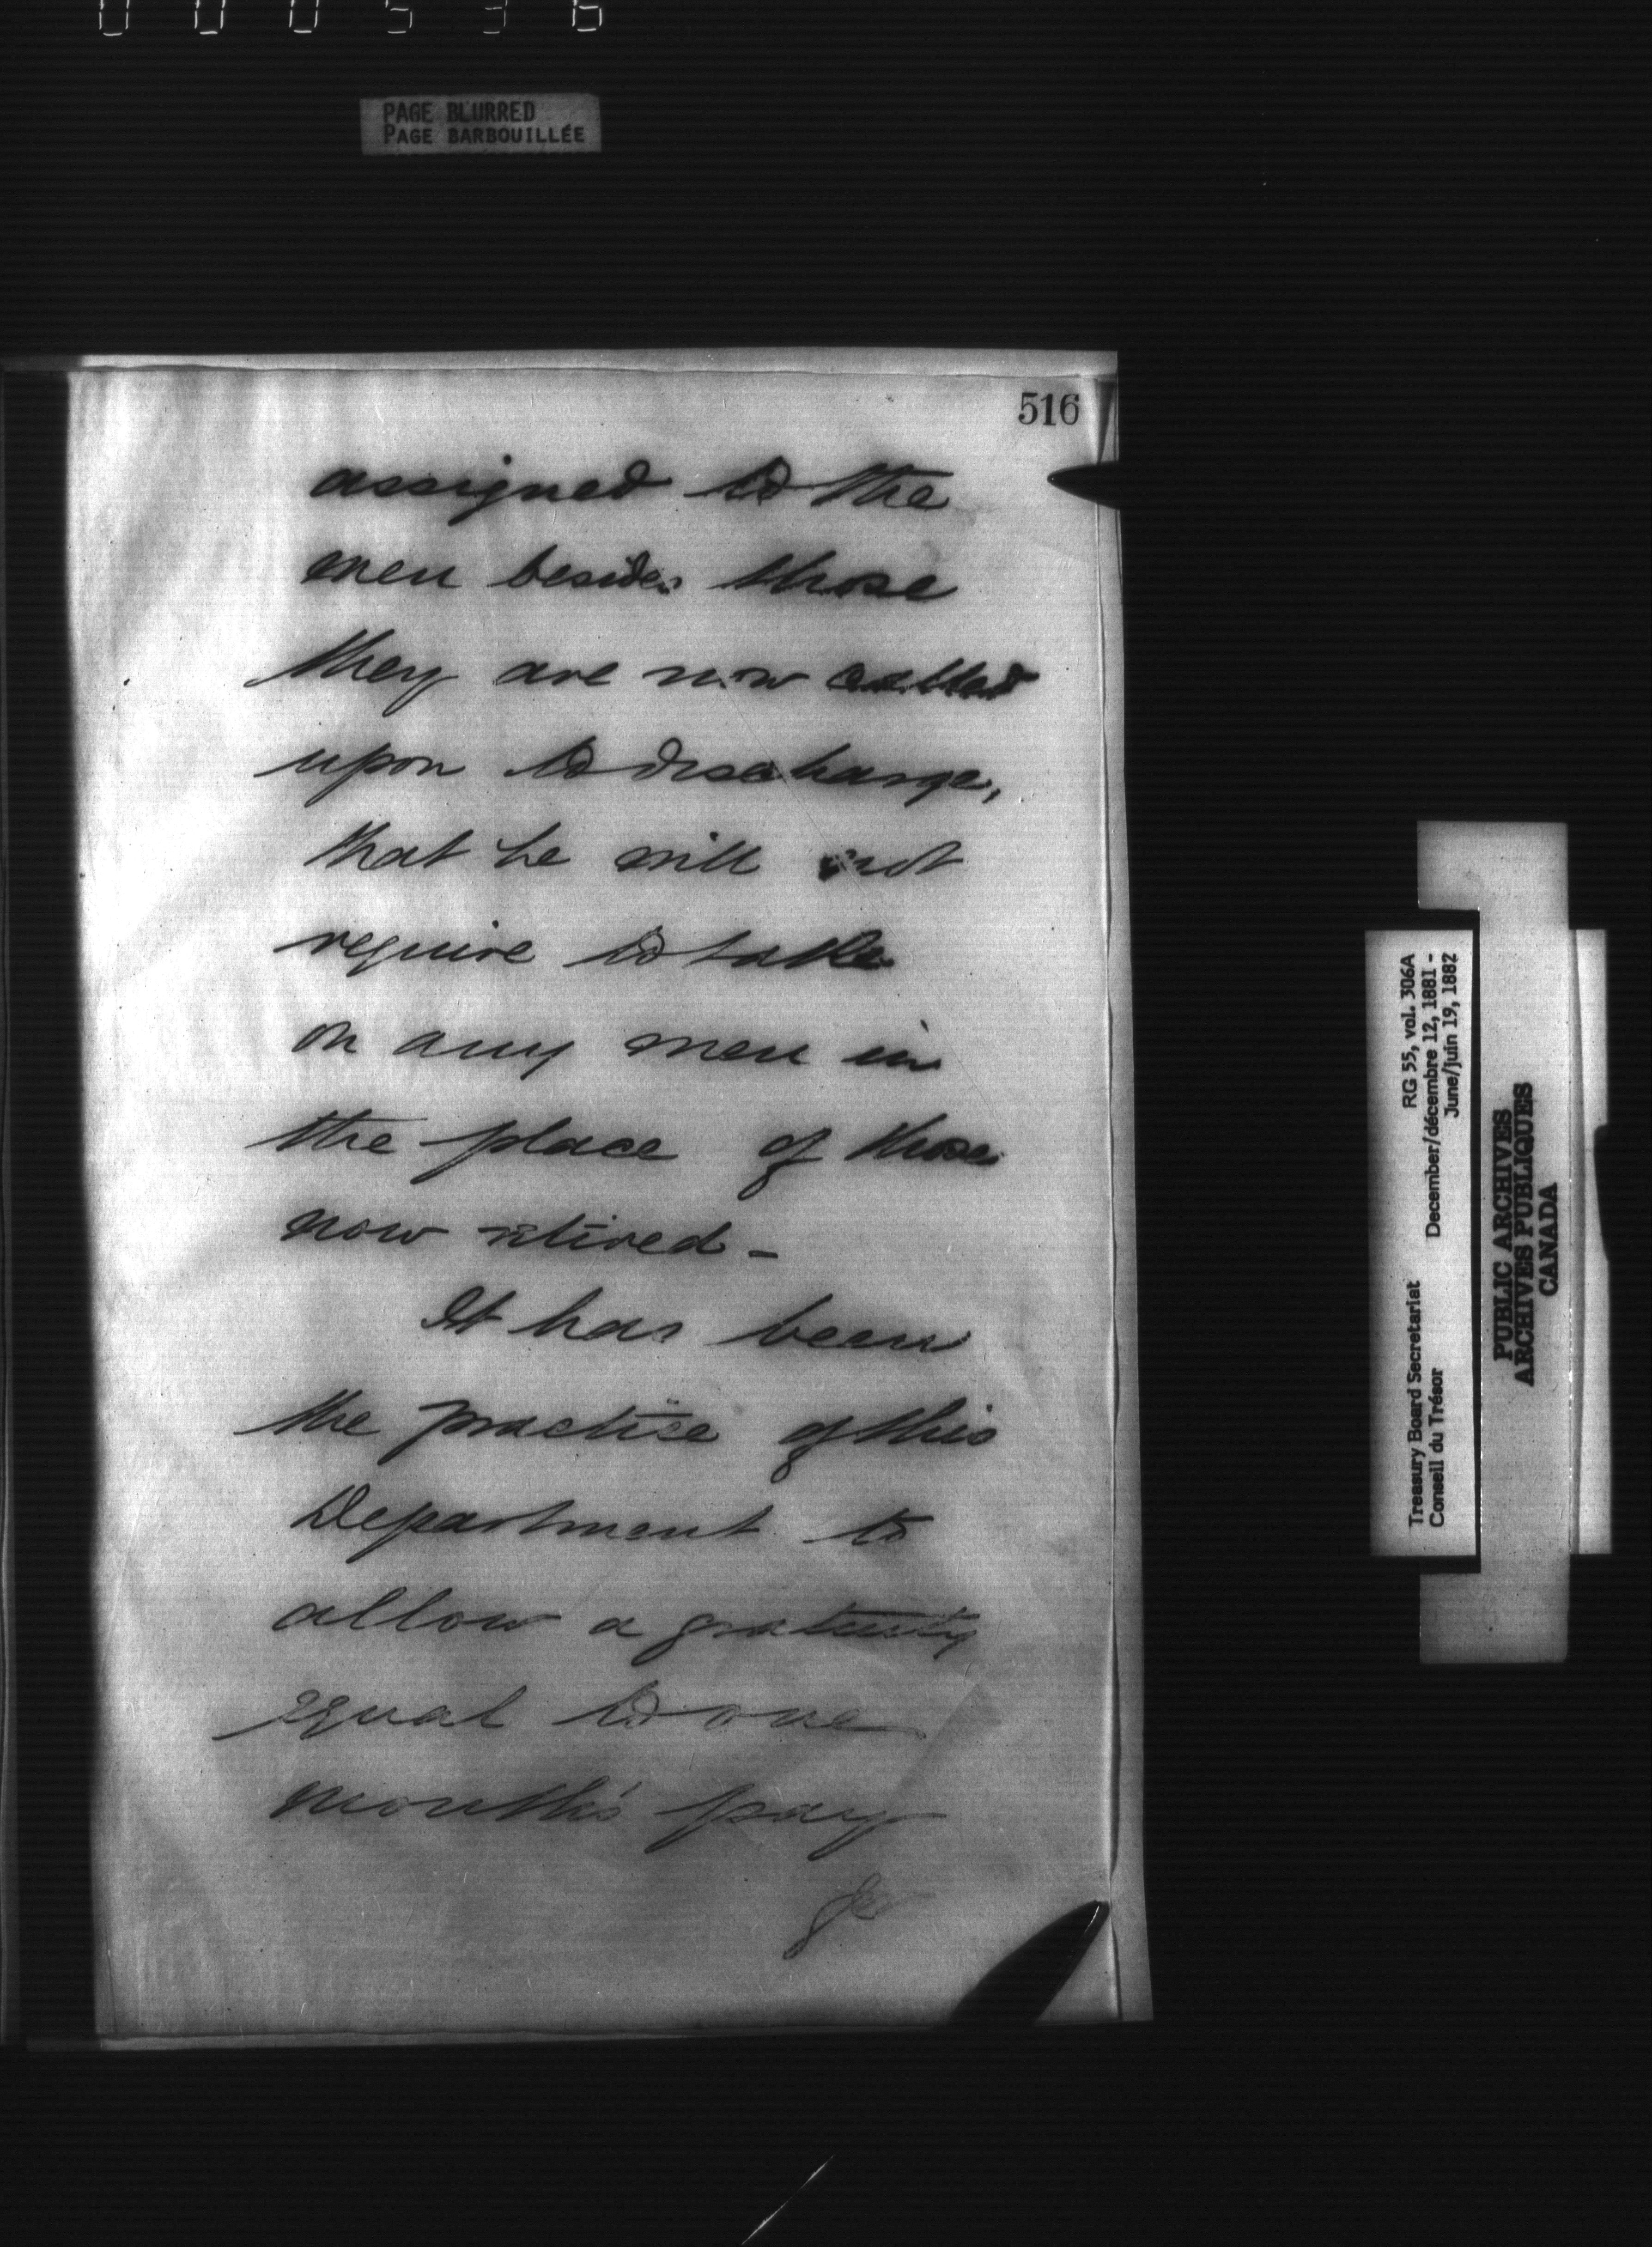 000536
PAGE BLURRED
PAGE BARBOUILLÉE
516
assigned to the
men besides those
they are now called
upon to discharge,
that he will not
require to take
on any men in
the place of those
now retired -
It has been
the practise of this
Department to
allow a gratuity
equal to one
month's pay
for
Treasury Board Secretariat RG 55, vol. 306A
Conseil du Trésor December/décembre 12, 1881 -
June/juin 19, 1882
PUBLIC ARCHIVES
ARCHIVES PUBLIQUES
CANADA